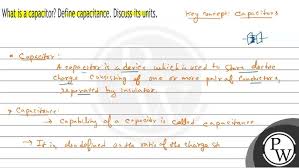 What is a capacitor? Define capacitance. Discuss its units.
Key concept: Capacitors
• Capacitor:
A capacitor is a device which is used to store electric
charge consisting of one or more pair of conductors,
separated by insulator.
→ Capacitance:
→ Capability of a capacitor is called capacitance
→ It is also defined as the ratio of the charge st
PW